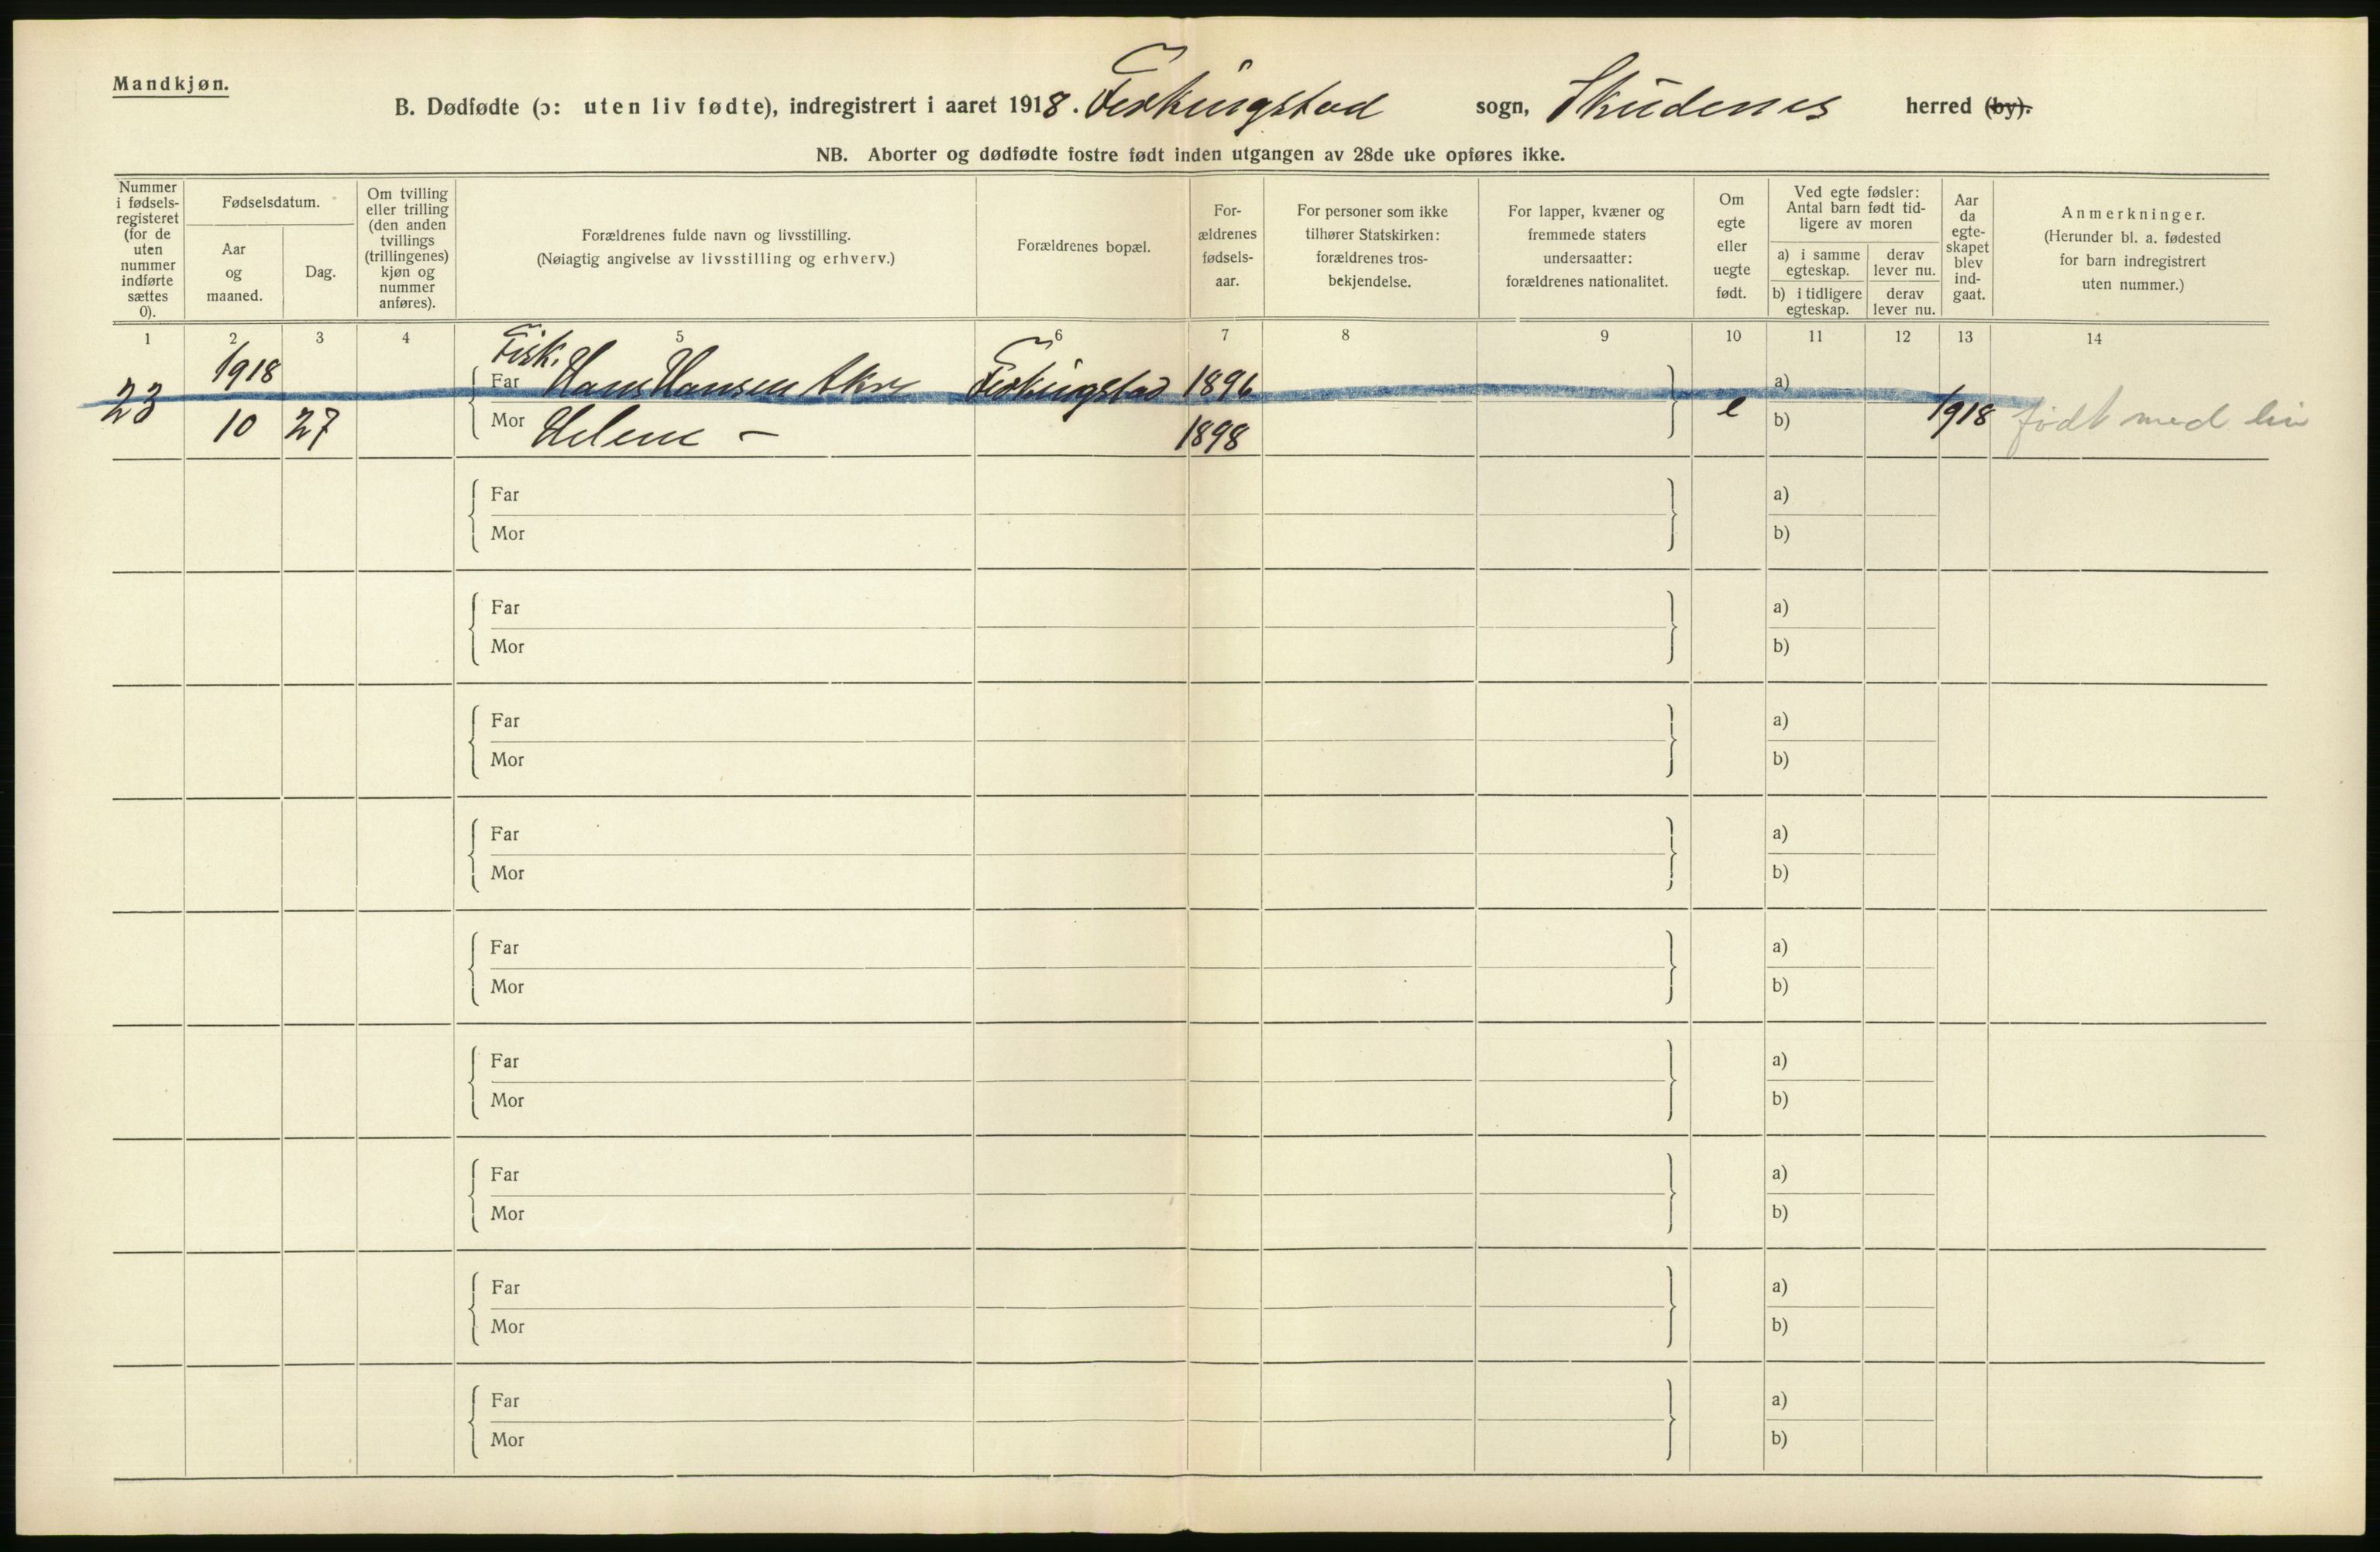 Mandkjøn.
B. Dødfødte (ɔ: uten liv fødte), indregistrert i aaret 1918. Ferkingstad sogn, Skudenes herred (by).
NB. Aborter og dødfødte fostre født inden utgangen av 28de uke opføres ikke.
Nummer i fødsels-registeret (for de uten nummer indførte sættes 0).
Fødselsdatum.
Aar og maaned.
Dag.
Om tvilling eller trilling (den anden tvillings (trillingenes) kjøn og nummer anføres).
Forældrenes fulde navn og livsstilling.
(Nøiagtig angivelse av livsstilling og erhverv.)
Forældrenes bopæl.
For-ældrenes fødsels-aar.
For personer som ikke tilhører Statskirken: forældrenes tros-bekjendelse.
For lapper, kvæner og fremmede staters undersaatter: forældrenes nationalitet.
Om egte eller uegte født.
Ved egte fødsler: Antal barn født tid-ligere av moren
a) i samme egteskap.
derav lever nu.
b) i tidligere egteskap.
derav lever nu.
Aar da egte-skapet blev ind-gaat.
Anmerkninger.
(Herunder bl. a. fødested for barn indregistrert uten nummer.)
1 2 3 4 5 6 7 8 9 10 11 12 13 14
1918 Fisk.
23 Far Hans Hansen Akre Ferkingstad 1896 a)
10 27 Mor Helene — 1898 e b) 1918 født med liv
Far a)
Mor b)
Far a)
Mor b)
Far a)
Mor b)
Far a)
Mor b)
Far a)
Mor b)
Far a)
Mor b)
Far a)
Mor b)
Far a)
Mor b)
Far a)
Mor b)